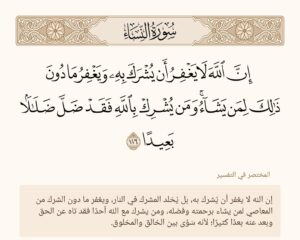 سُورَةُ النِّسَاءِ
إِنَّ ٱللَّهَ لَا يَغْفِرُ أَن يُشْرَكَ بِهِۦ وَيَغْفِرُ مَا دُونَ
ذَٰلِكَ لِمَن يَشَآءُ ۚ وَمَن يُشْرِكْ بِٱللَّهِ فَقَدْ ضَلَّ ضَلَٰلًۢا
بَعِيدًا ١١٦
المختصر في التفسير
إن الله لا يغفر أن يُشْرك به، بل يُخلد المشرك في النار، ويغفر ما دون الشرك من
المعاصي لمن يشاء برحمته وفضله، ومن يشرك مع الله أحدًا فقد تاه عن الحق
وبعد عنه بعدًا كثيرًا؛ لأنه سَوَّى بين الخالق والمخلوق.